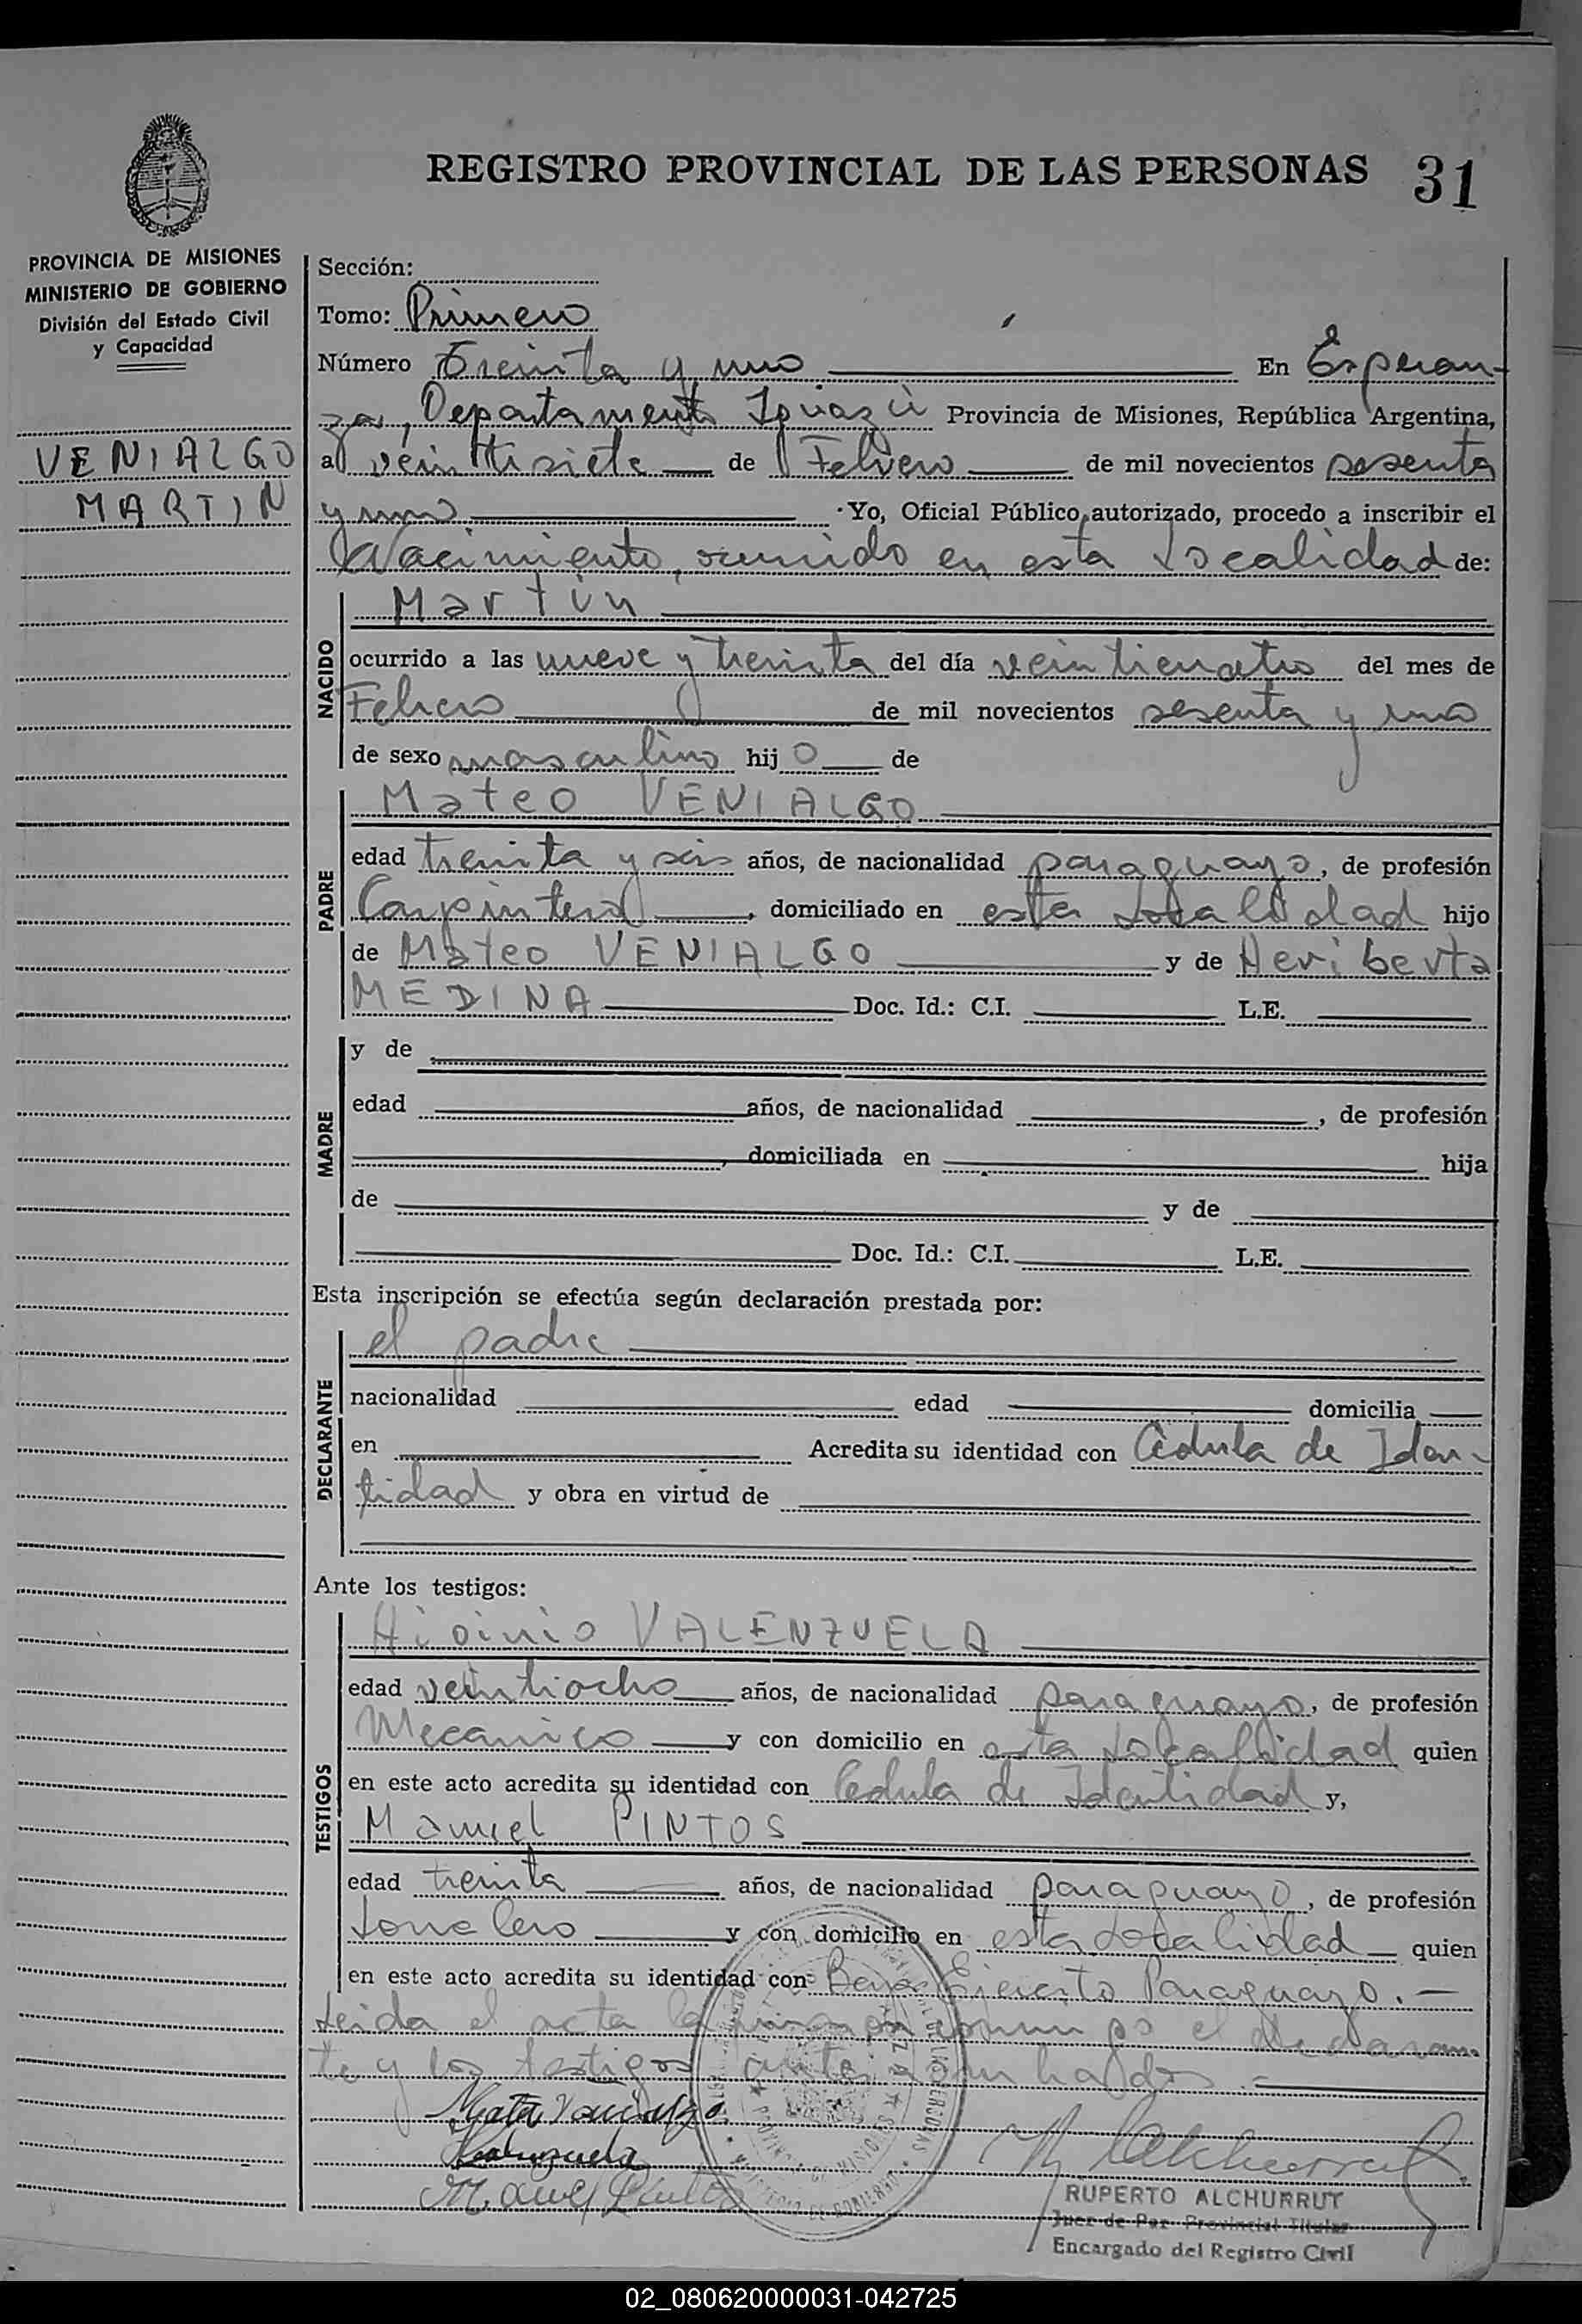 REGISTRO PROVINCIAL DE LAS PERSONAS 31
PROVINCIA DE MISIONES
MINISTERIO DE GOBIERNO
División del Estado Civil
y Capacidad
VENIALGO
MARTIN
Sección:
Tomo: Primero
Número Treinta y uno En Esperan-
za, Departamento Iguazú Provincia de Misiones, República Argentina,
a veintisiete de Febrero de mil novecientos sesenta
y uno Yo, Oficial Público autorizado, procedo a inscribir el
Nacimiento, ocurrido en esta Localidad de:
NACIDO
Martin
ocurrido a las nueve y treinta del día veinticuatro del mes de
Febrero de mil novecientos sesenta y uno
de sexo masculino hijo de
PADRE
Mateo VENIALGO
edad treinta y seis años, de nacionalidad paraguayo, de profesión
Carpintero, domiciliado en esta Localidad hijo
de Mateo VENIALGO y de Heriberta
MEDINA Doc. Id.: C.I. L.E.
MADRE
y de
edad años, de nacionalidad , de profesión
, domiciliada en hija
de y de
Doc. Id.: C.I. L.E.
Esta inscripción se efectúa según declaración prestada por:
DECLARANTE
el padre
nacionalidad edad domicilia
en Acredita su identidad con Cédula de Iden-
tidad y obra en virtud de
Ante los testigos:
TESTIGOS
Higinio VALENZUELA
edad veintiocho años, de nacionalidad paraguayo, de profesión
Mecanico y con domicilio en esta Localidad quien
en este acto acredita su identidad con Cedula de Identidad y,
Manuel PINTOS
edad treinta años, de nacionalidad paraguayo, de profesión
y con domicilio en esta Localidad quien
en este acto acredita su identidad con Ejercito Paraguayo.-
Leida el acta la firman el declaran-
te y los testigos
Mateo Venialgo
Valenzuela
Manuel Pintos
RUPERTO ALCHURRUT
Juez de Paz Provincial Titular
Encargado del Registro Civil
02_080620000031-042725